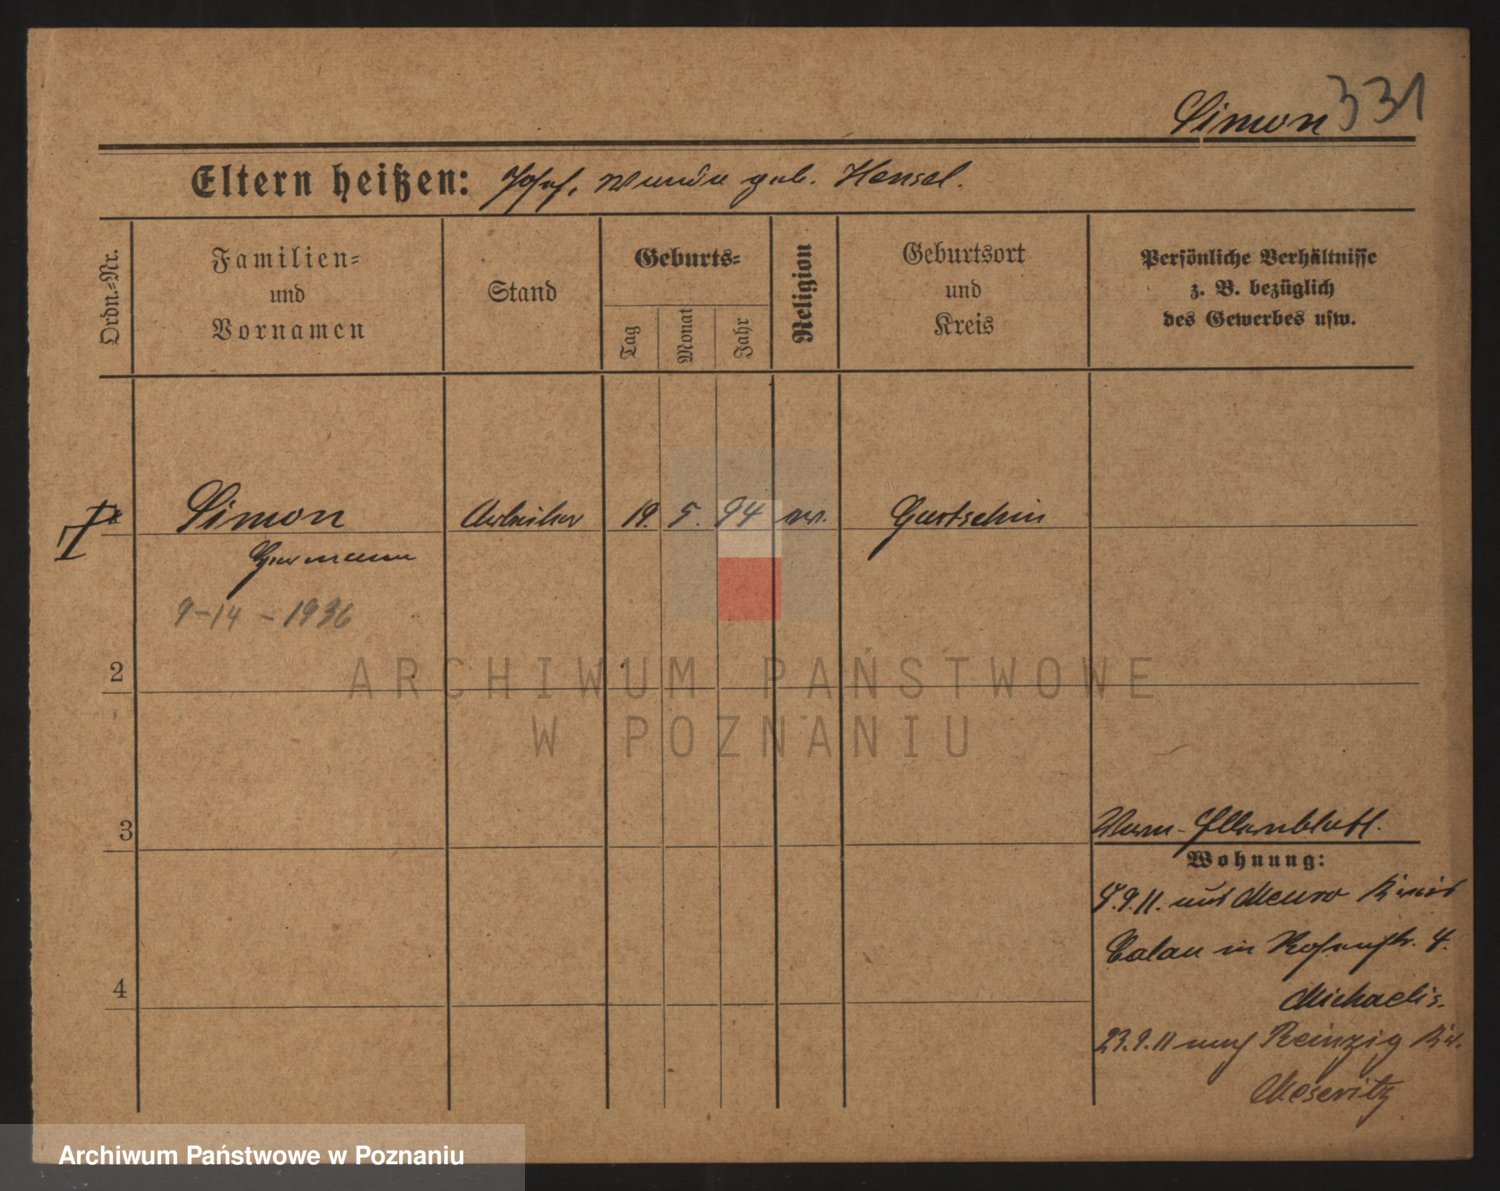 Simon 331
Eltern heißen: Josef, Wunda geb. Hensel.
Ordn.-Nr.
Familien-
und
Vornamen
Stand
Geburts-
Tag
Monat
Jahr
Religion
Geburtsort
und
Kreis
Persönliche Verhältnisse
z. B. bezüglich
des Gewerbes usw.
Simon Arbeiter 19. 5. 94 ev. Gurtschin
Hermann
9-14-1936
2
ARCHIWUM PAŃSTWOWE
W POZNANIU
3
Wohnung:
9.11. aus Meuro Kreis
Calau in 4.
4
Michaelis.
23.9.11 nach Reinzig Kr.
Meseritz
Archiwum Państwowe w Poznaniu